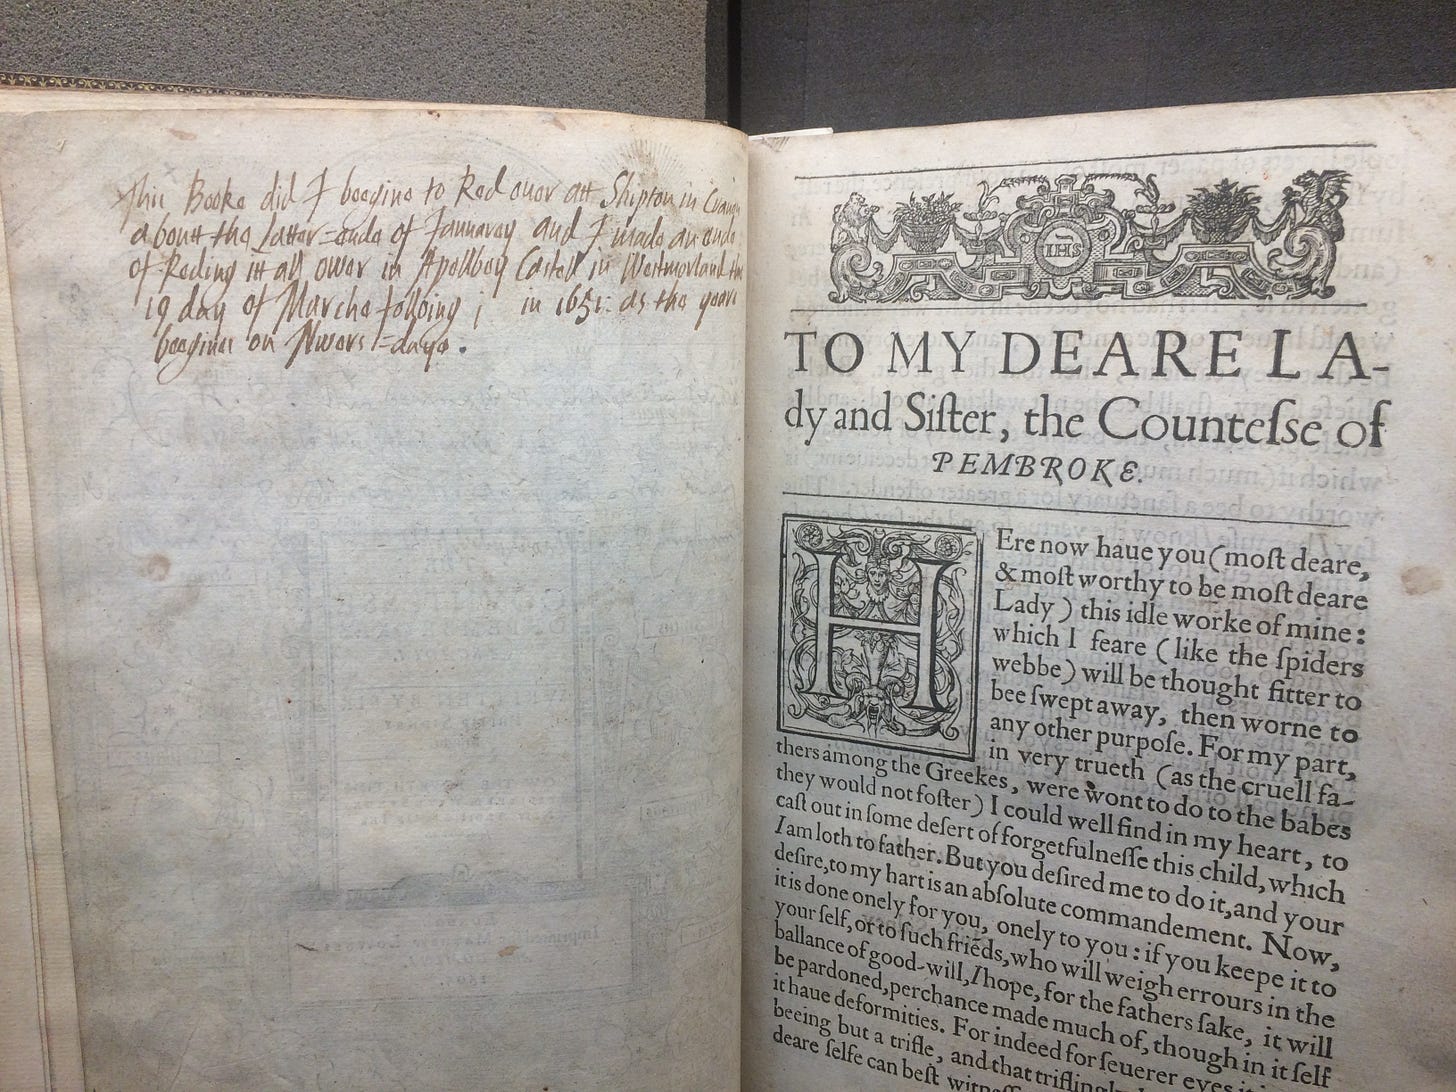 This Booke did I beegine to Red over att Shipton in Craven
aboutt the latter=ende of Jannarey and I made an ende
of Reding itt all over in Apellbey Castell in Westmorland the
19 day of Marche folloing ; in 1651: as the yeare
beegines on Nwers=daye.
IHS
TO MY DEARE LA-
dy and Siſter, the Counteſſe of
PEMBROKE.
HEre now haue you (moſt deare,
& moſt worthy to be moſt deare
Lady ) this idle worke of mine :
which I feare ( like the ſpiders
webbe) will be thought fitter to
bee ſwept away, then worne to
any other purpoſe. For my part,
in very trueth (as the cruell fa-
thers among the Greekes, were wont to do to the babes
they would not foſter) I could well find in my heart, to
caſt out in ſome deſert of forgetfulneſſe this child, which
I am loth to father. But you deſired me to do it, and your
deſire, to my hart is an abſolute commandement. Now,
it is done onely for you, onely to you : if you keepe it to
your ſelf, or to ſuch friẽds, who will weigh errours in the
ballance of good-will, I hope, for the fathers ſake, it will
be pardoned, perchance made much of, though in it ſelf
it haue deformities. For indeed for ſeuerer eyes it
beeing but a trifle, and that
deare ſelfe can beſt